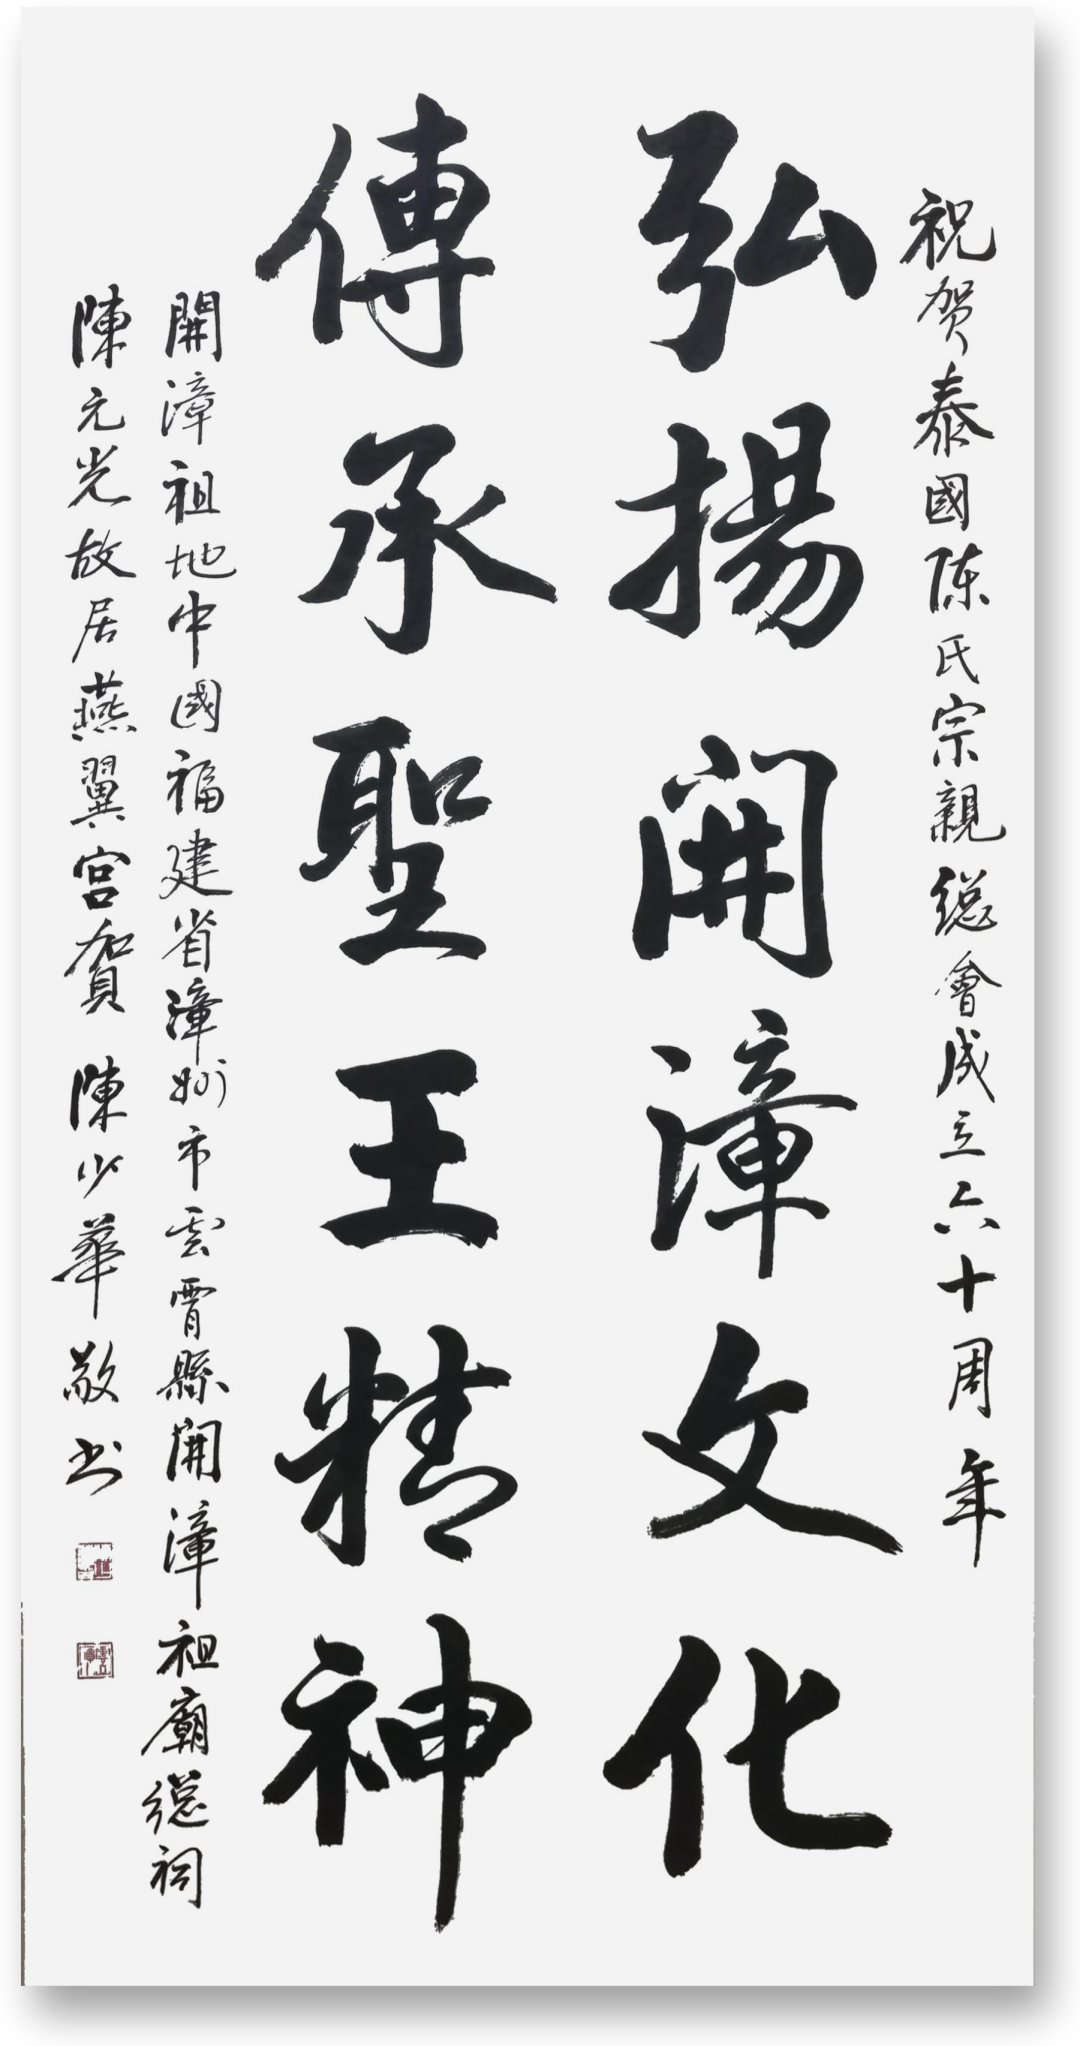 祝贺泰國陈氏宗親総會成立六十周年
弘揚開漳文化
傳承聖王精神
開漳祖地中國福建省漳州市雲霄縣開漳祖廟総祠
陳元光故居燕翼宮賀 陳少華敬书